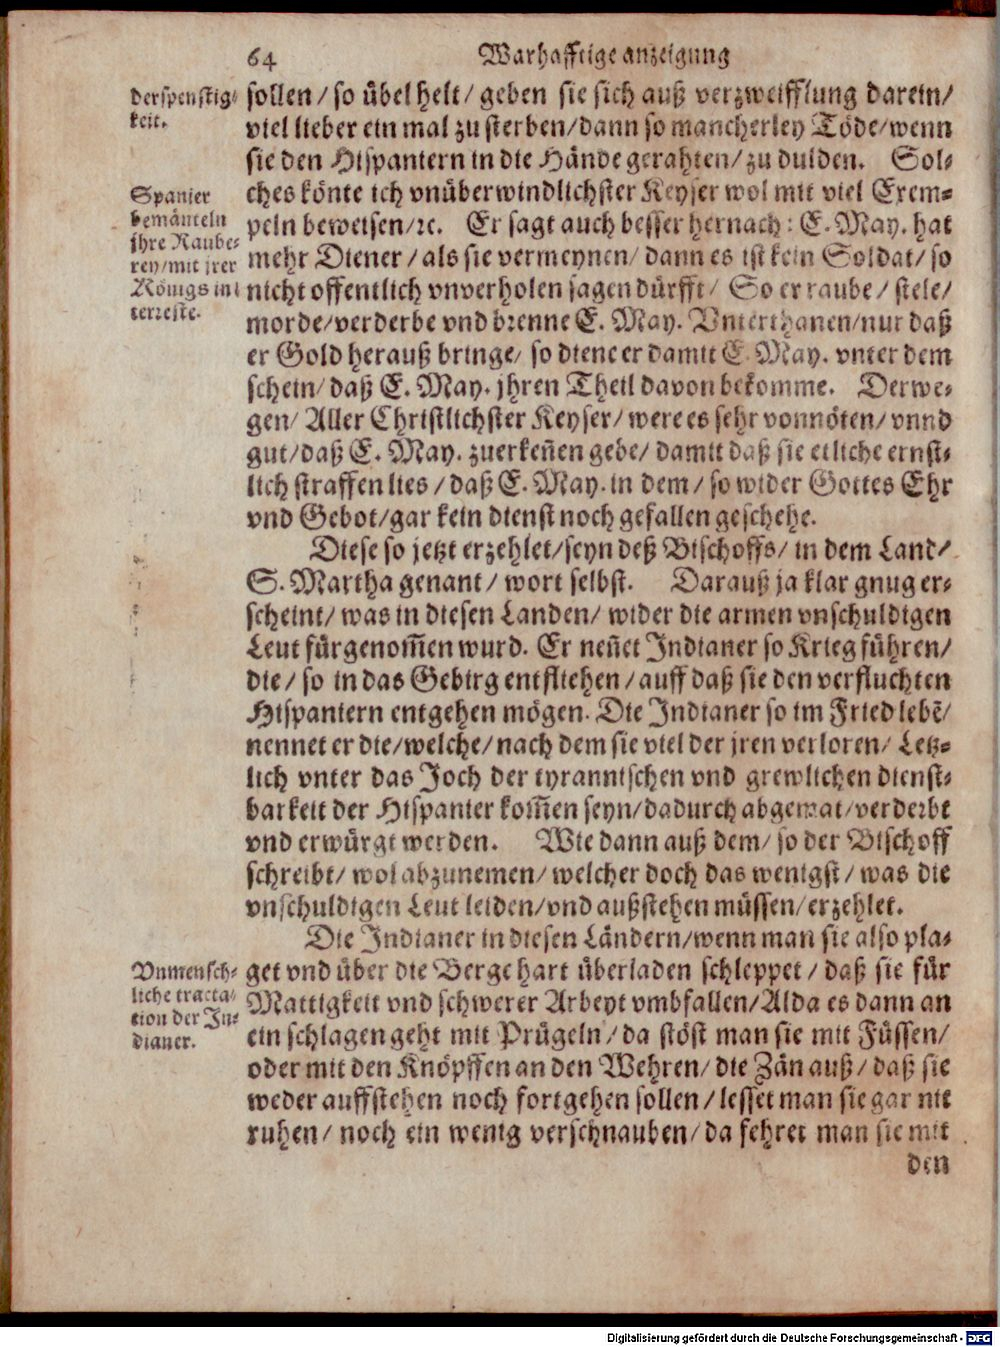 64 Warhafftige anzeigung
derspenstig-
keit.
sollen / so übel helt / geben sie sich auß verzweifflung darein /
viel lieber ein mal zu sterben / dann so mancherley Töde / wenn
sie den Hispaniern in die Hände gerahten / zu dulden. Sol-
Spanier
bemänteln
ihre Raube-
rey / mit jrer
Königs in-
terreste.
ches könte ich vnüberwindlichster Keyser wol mit viel Exem-
peln beweisen / ꝛc. Er sagt auch besser hernach : E. May. hat
mehr Diener / als sie vermeynen / dann es ist kein Soldat / so
nicht offentlich vnverholen sagen dürfft / So er raube / stele /
morde / verderbe vnd brenne E. May. Vnterthanen / nur daß
er Gold herauß bringe / so diene er damit E. May. vnter dem
schein / daß E. May. jhren Theil davon bekomme. Derwe-
gen / Aller Christlichster Keyser / were es sehr vonnöten / vnnd
gut / daß E. May. zuerkeñen gebe / damit daß sie etliche ernst-
lich straffen lies / daß E. May. in dem / so wider Gottes Ehr
vnd Gebot / gar kein dienst noch gefallen geschehe.
Diese so jetzt erzehlet / seyn deß Bischoffs / in dem Land /
S. Martha genant / wort selbst. Darauß ja klar gnug er-
scheint / was in diesen Landen / wider die armen vnschuldigen
Leut fürgenom̃en wurd. Er neñet Indianer so Krieg führen /
die / so in das Gebirg entfliehen / auff daß sie den verfluchten
Hispaniern entgehen mögen. Die Indianer so im Fried lebẽ /
nennet er die / welche / nach dem sie viel der jren verloren / Letz-
lich vnter das Joch der tyrannischen vnd grewlichen dienst-
barkeit der Hispanier kom̃en seyn / dadurch abgemat / verderbt
vnd erwürgt werden. Wie dann auß dem / so der Bischoff
schreibt / wol abzunemen / welcher doch das wenigst / was die
vnschuldigen Leut leiden / vnd außstehen müssen / erzehlet.
Die Indianer in diesen Ländern / wenn man sie also pla-
Vnmensch-
liche tracta-
tion der In-
dianer.
get vnd über die Berge hart überladen schleppet / daß sie für
Mattigkeit vnd schwerer Arbeyt vmbfallen / Alda es dann an
ein schlagen geht mit Prügeln / da stöst man sie mit Füssen /
oder mit den Knöpffen an den Wehren / die Zän auß / daß sie
weder auffstehen noch fortgehen sollen / lesset man sie gar nit
ruhen / noch ein wenig verschnauben / da fehret man sie mit
den
Digitalisierung gefördert durch die Deutsche Forschungsgemeinschaft - DFG